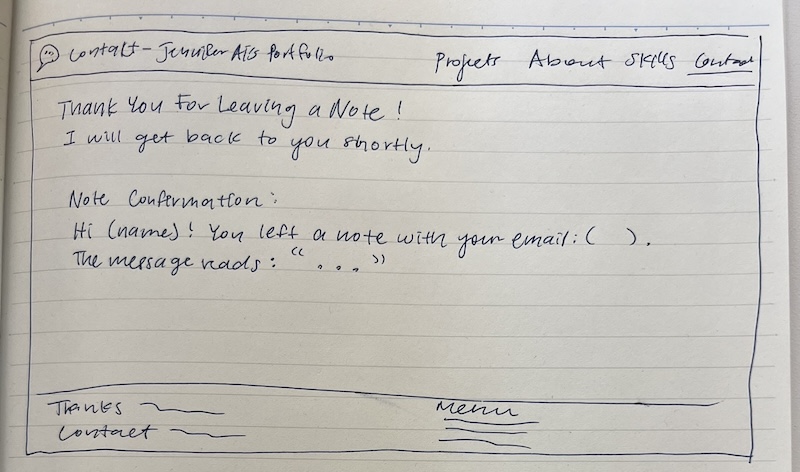 Contact - Jennifer Ai's Portfolio
Projects About Skills Contact
Thank You For Leaving a Note!
I will get back to you shortly.
Note Confirmation:
Hi (name)! You left a note with your email: ( ).
The message reads: “...”
Thanks
Contact
Menu